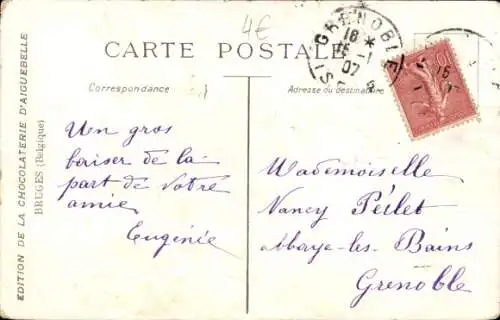 4€
CARTE POSTALE
GRENOBLE
18 *
15 -1
07
ISÈRE
Correspondance
Adresse du destinataire
EDITION DE LA CHOCOLATERIE D'AIGUEBELLE
BRUGES (Belgique)
Un gros
baiser de la
part de votre
amie
Eugénie
Mademoiselle
Nancy Péilet
Abbaye-les-Bains
Grenoble